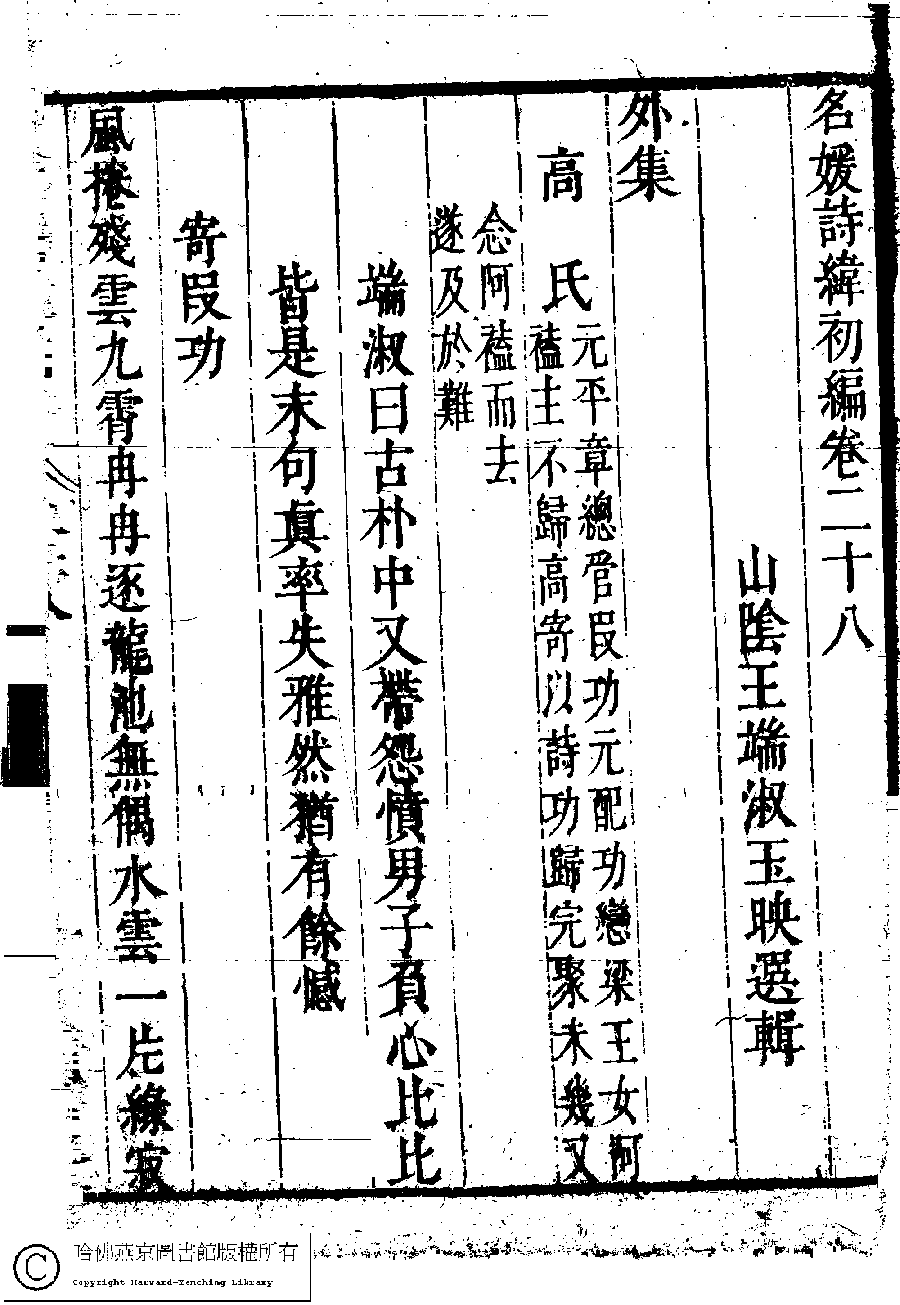 名媛詩緯初編卷二十八
山陰王端淑玉映選輯
外集
高氏
元平章總管叚功元配功戀梁王女阿
𧝓主不歸高寄以詩功歸完聚未幾又
念阿𧝓而去
遂及於難
端淑曰古朴中又帶怨憤男子負心比比
皆是末句真率失雅然猶有餘憾
寄叚功
風捲殘雲九霄冉冉逐龍池無偶水雲一片綠寂
哈佛燕京圖書館版權所有
Copyright Harvard-Yenching Library